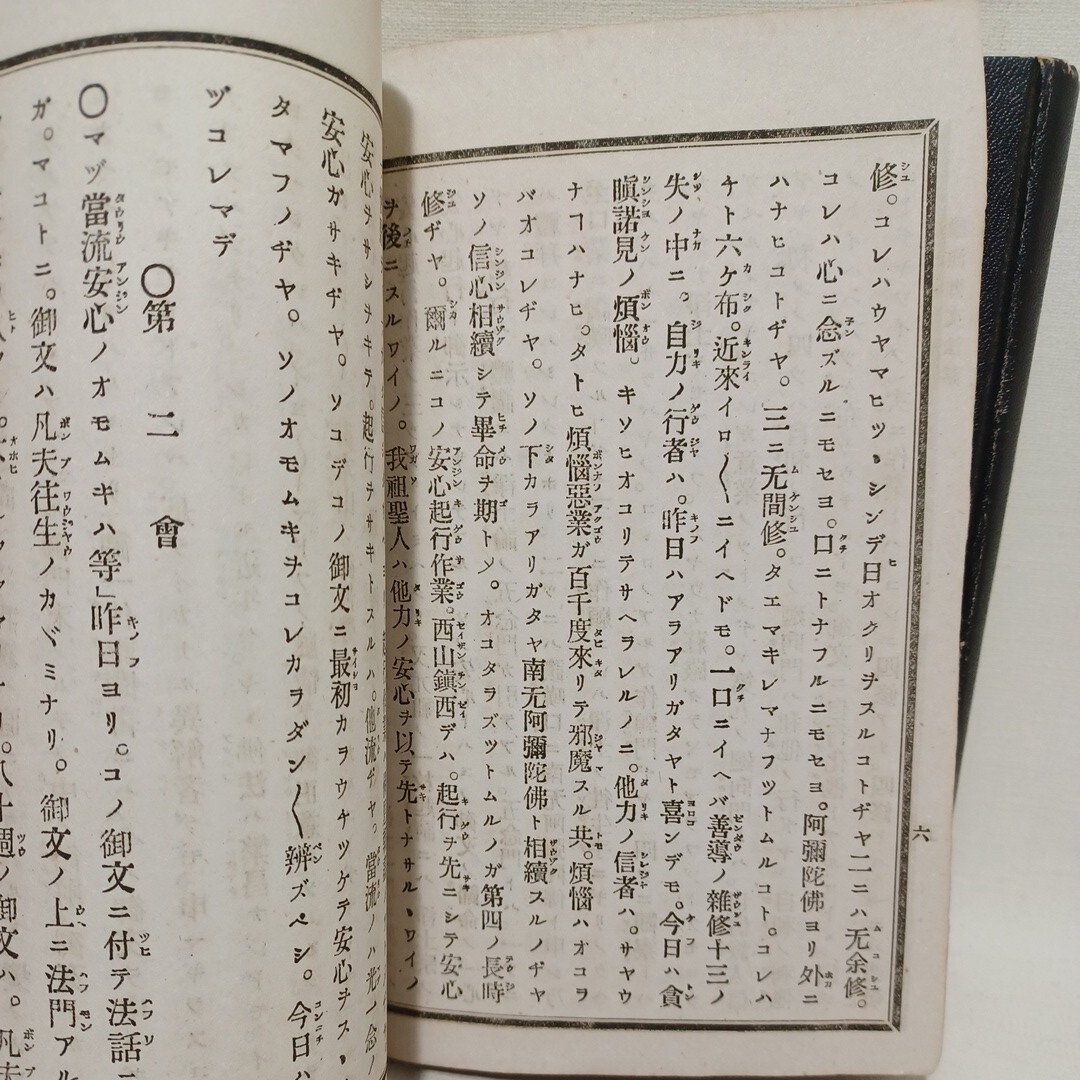 修。コレハウヤマヒツヽシンデ日オクリヲスルコトヂヤ二ニハ无余修。
コレハ心ニ念ズルニモセヨ。口ニトナフルニモセヨ。阿彌陀佛ヨリ外ニ
ハナヒコトヂヤ。三ニ无間修。タエマキレマナフツトムルコト。コレハ
チト六ケ布。近來イロ〱ニイヘドモ。一口ニイヘバ善導ノ雜修十三ノ
失ノ中ニ。自力ノ行者ハ。昨日ハアラアリガタヤト喜ンデモ。今日ハ貪
瞋諾見ノ煩惱。キソヒオコリテサヘラレルノニ。他力ノ信者ハ。サヤウ
ナヿハナヒ。タトヒ煩惱惡業ガ百千度來リテ邪魔スル共。煩惱ハオコラ
バオコレヂヤ。ソノ下カラアリガタヤ南无阿彌陀佛ト相續スルノヂヤ
ソノ信心相續シテ畢命ヲ期トシ。オコタラズツトムルノガ第四ノ長時
修ヂヤ。爾ルニコノ安心起行作業。西山鎮西デハ。起行ヲ先ニシテ安心
ヲ後ニスルワイノ。我祖聖人ハ他力ノ安心ヲ以テ先トナサルヽワイノ
六
安心ヲサシヲキテ。起行ヲサキトスルハ。他流ヂヤ。當流ノハ光一念ノ
安心ガサキヂヤ。ソコデコノ御文ニ最初カラウチツケテ安心ヲスヽ
タマフノヂヤ。ソノオモムキヲコレカラダン〱辨ズベシ。今日ハ
ヅコレマデ
〇第二會
〇マヅ當流安心ノオモムキハ等」昨日ヨリ。コノ御文ニ付テ法話ニ
ガ。マコトニ。御文ハ凡夫往生ノカヾミナリ。御文ノ上ニ法門アル
御文ハ。凡夫